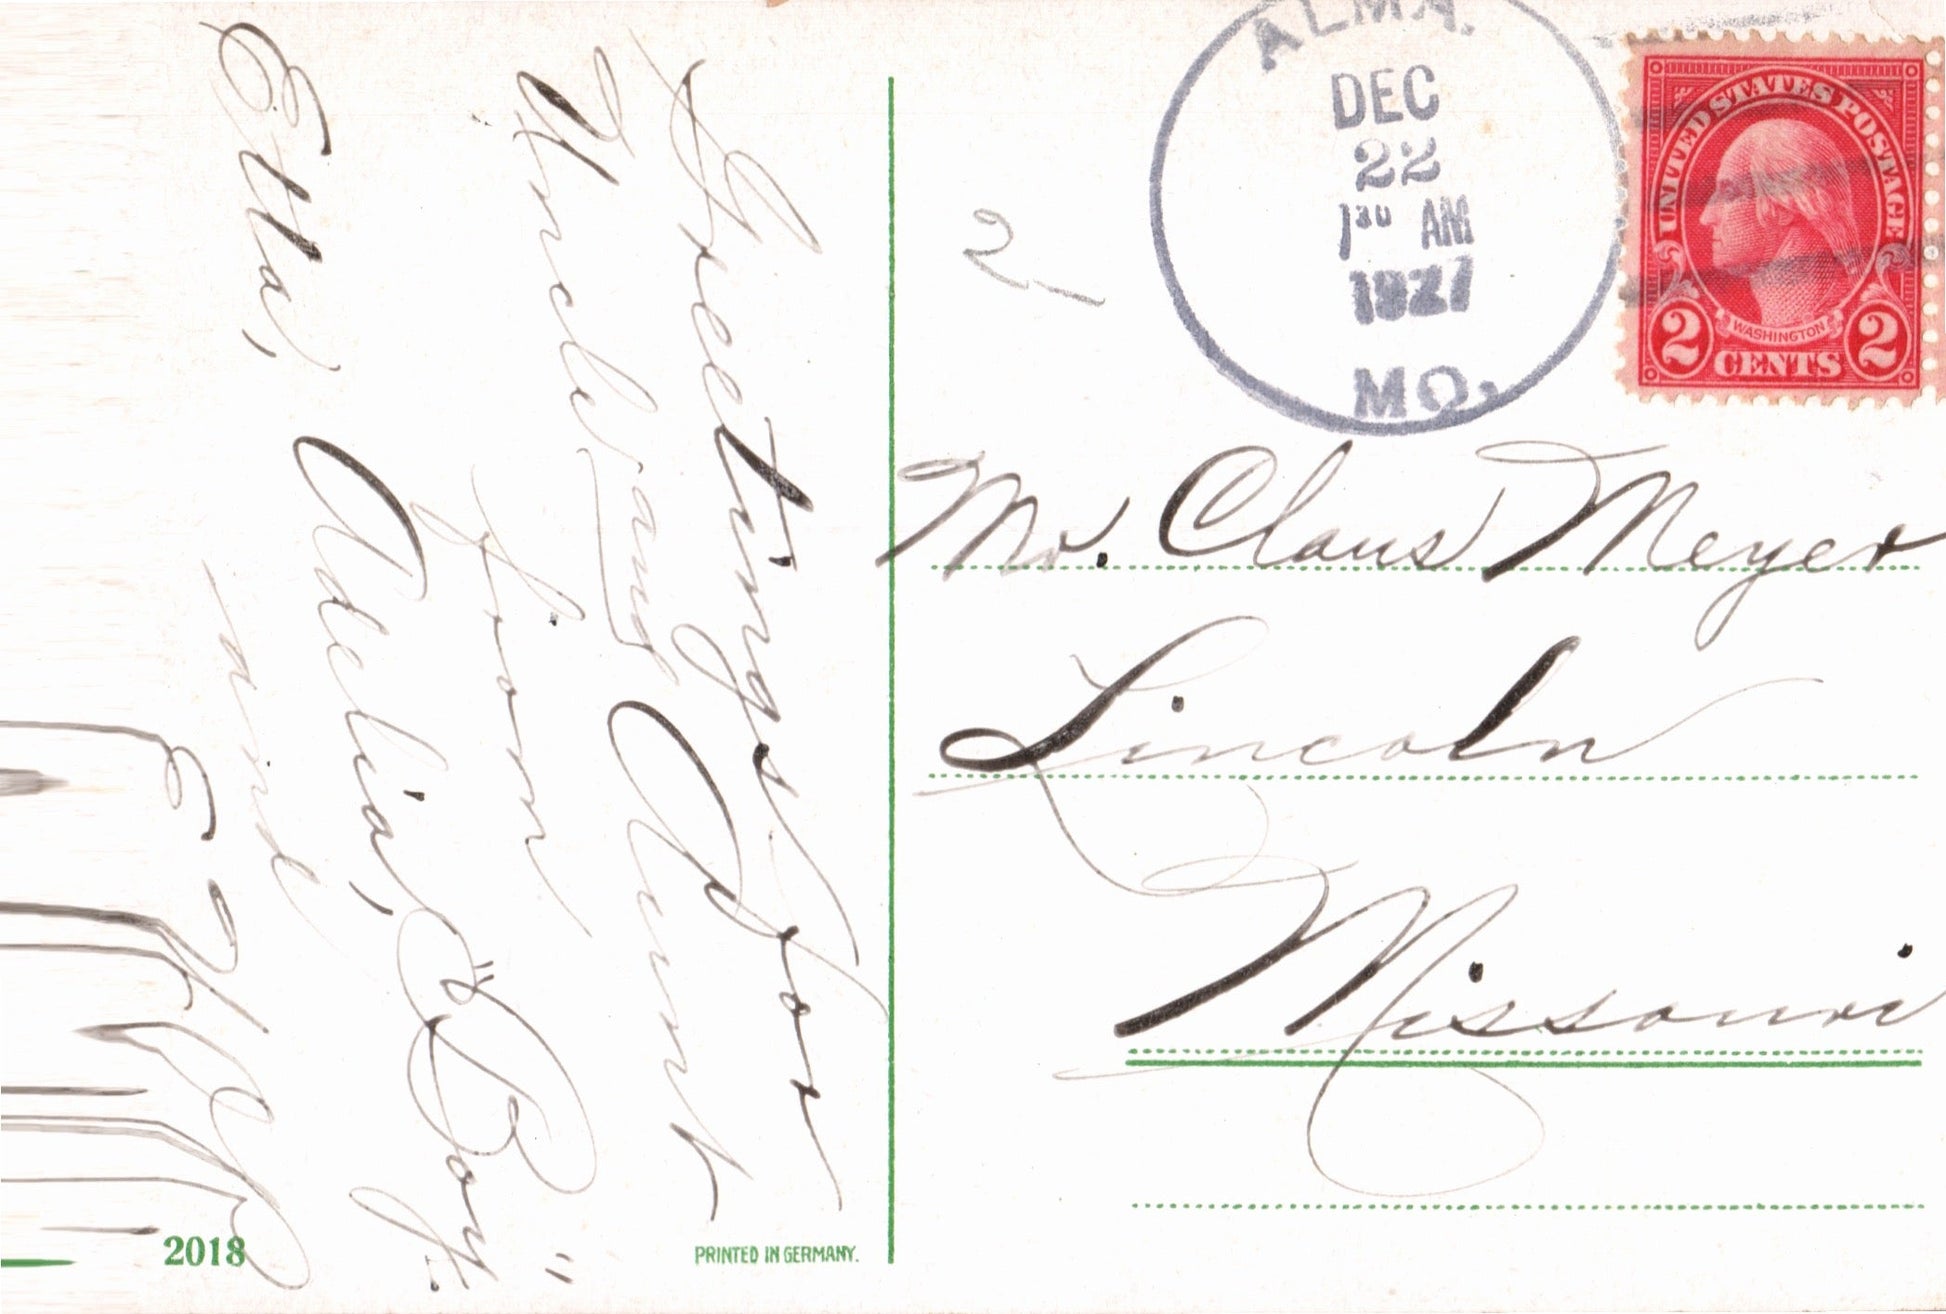 Greetings for
Uncle and Aunt
from
Adelia, "Boy."
Etta,
and
ALMA.
DEC
22
1³⁰ AM
1927
MO.
UNITED STATES POSTAGE
WASHINGTON
2 CENTS 2
2
Mr. Claus Meyer
Lincoln
Missouri
2018
PRINTED IN GERMANY.